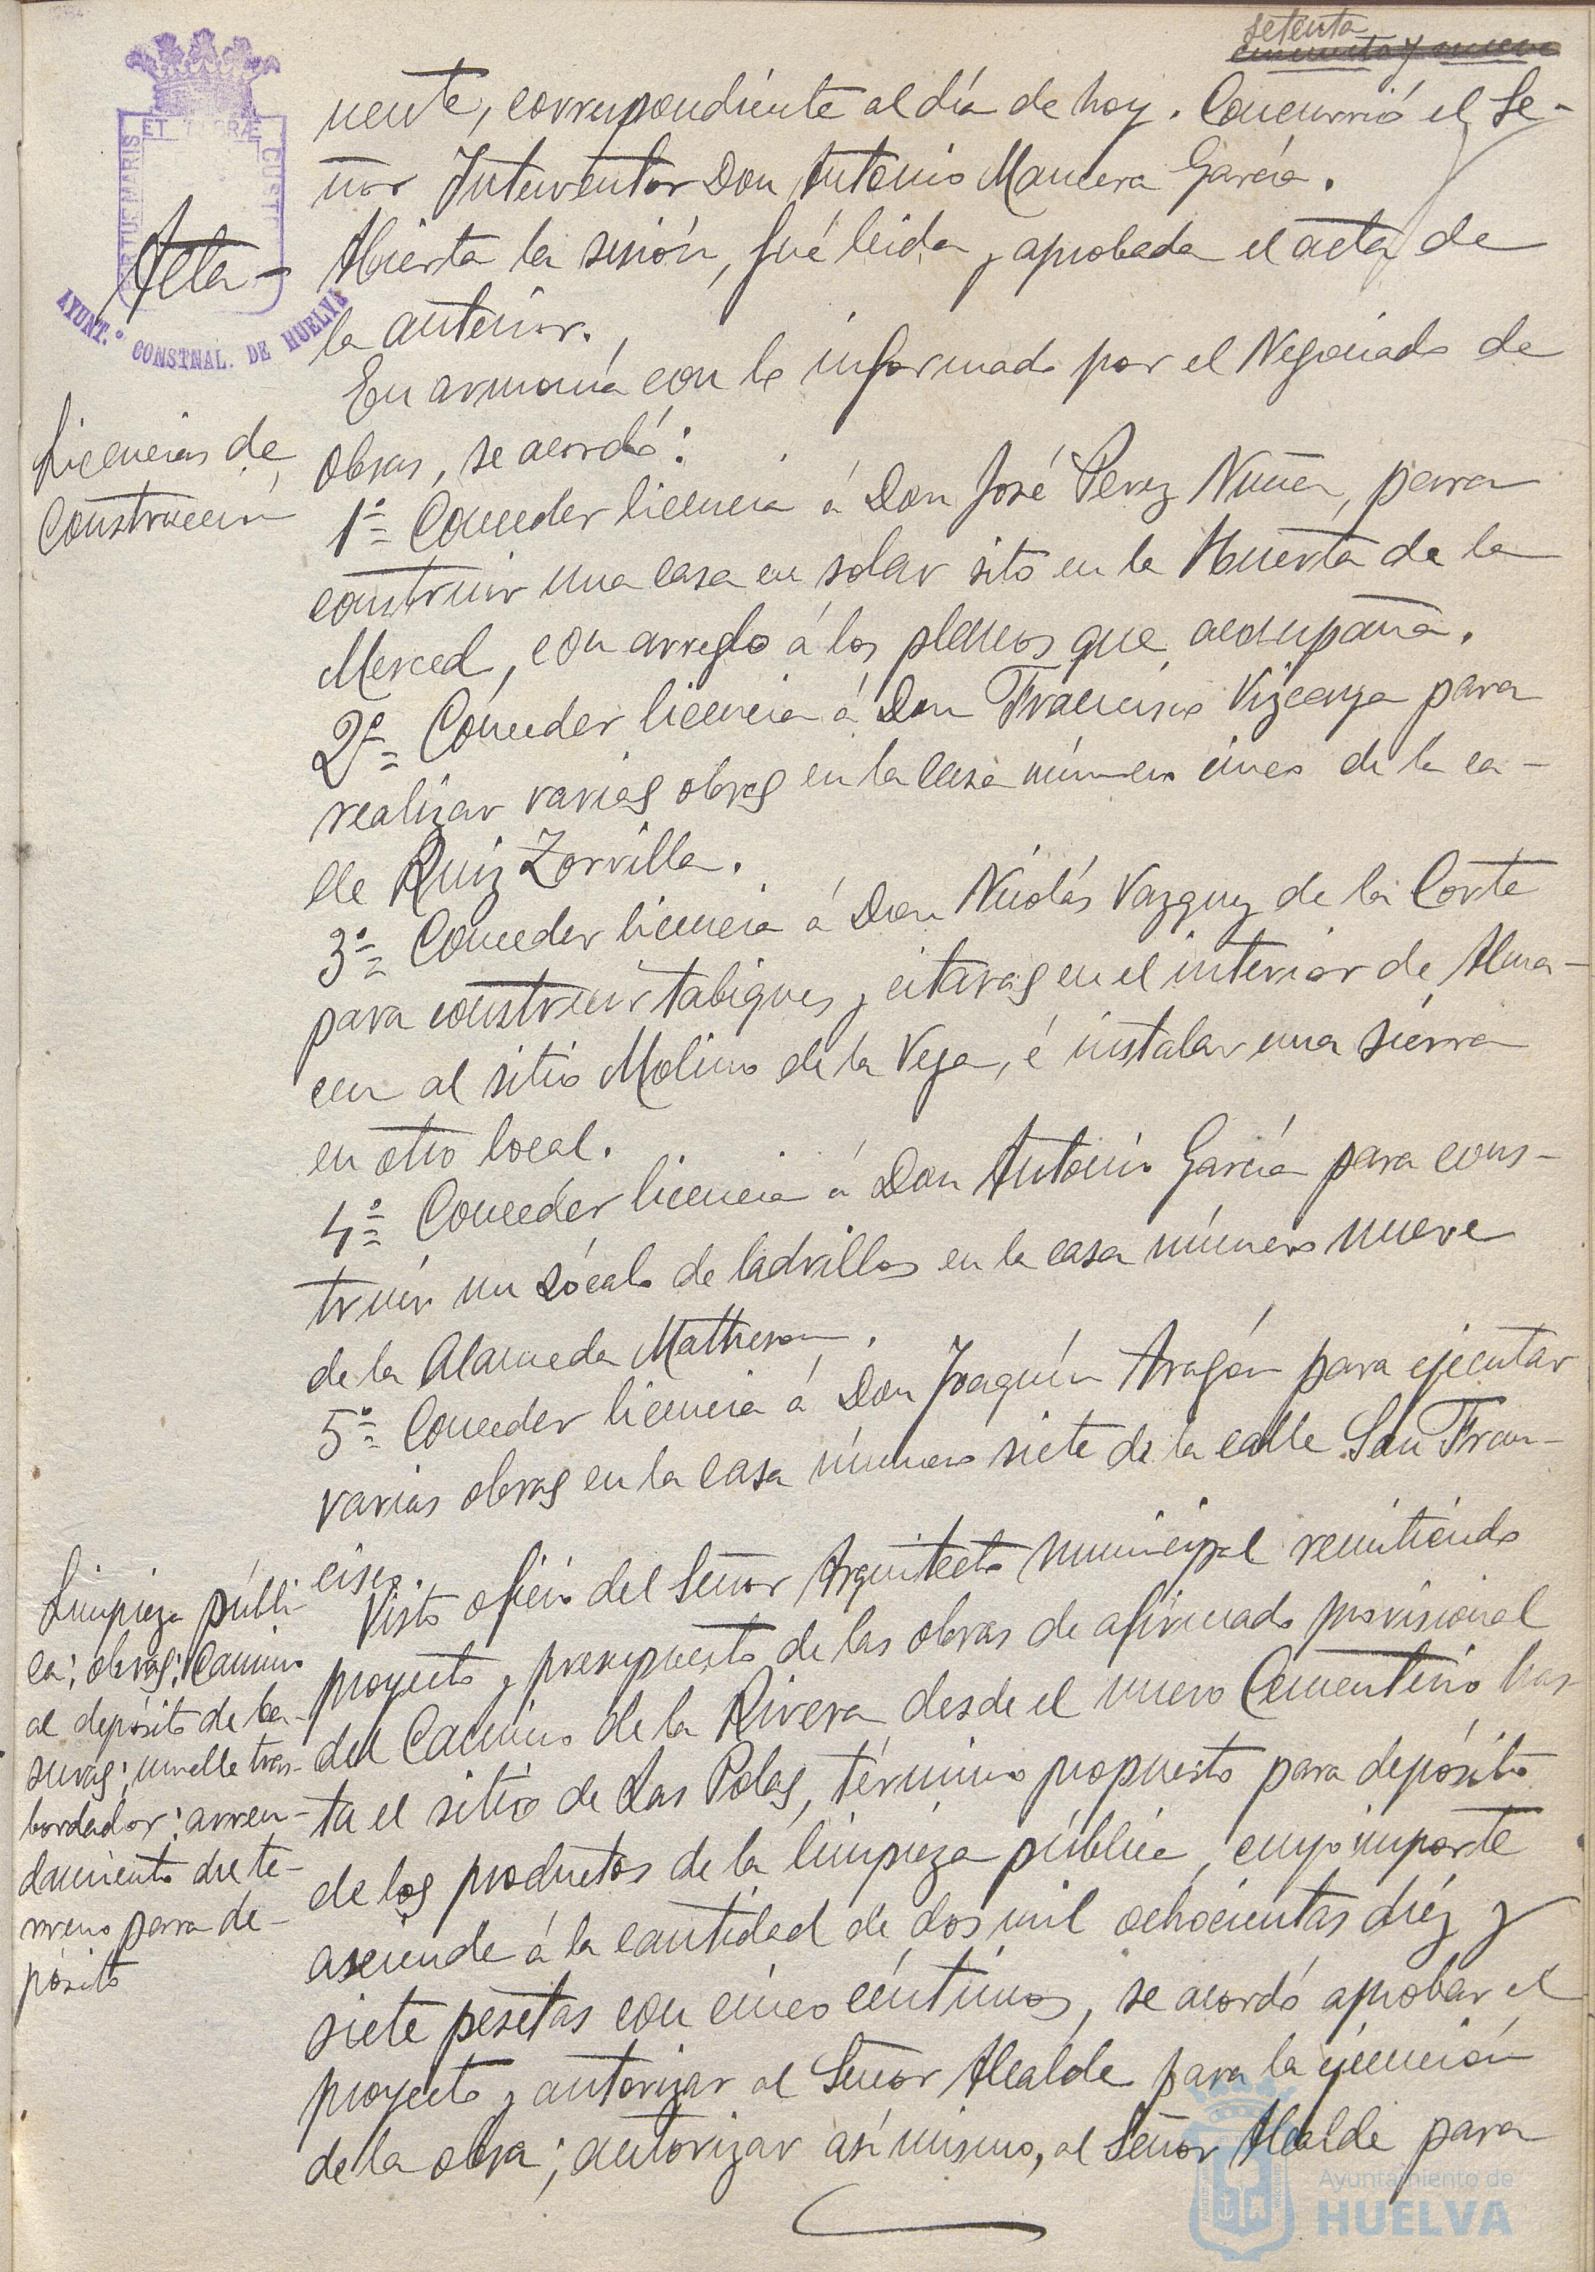 setenta
cincuenta y nueve
nente, correspondiente al día de hoy. Concurrió el Se-
ñor Interventor Don Antonio Mancera García.
ET TERRÆ
PORTUS MARIS
CUST
AYUNT.º CONSTNAL. DE HUELVA
Acta-
Abierta la sesión, fué leida y aprobada el acta de
la anterior.
En armonía con lo informado por el Negociado de
Licencias de
Construcción
obras, se acordó:
1º= Conceder licencia á Don José Perez Nuñez, para
construir una casa en solar sito en la Huerta de la
Merced, con arreglo á los planos que acompaña.
2º= Conceder licencia á Don Francisco Vizcaya para
realizar varias obras en la casa número cinco de la ca-
lle Ruiz Zorrilla.
3º= Conceder licencia á Don Nicolás Vazquez de la Corte
para construir tabiques y citaras en el interior de Alma-
cen al sitio Molino de la Vega, é instalar una sierra
en otro local.
4º= Conceder licencia á Don Antonio García para cons-
truir un zócalo de ladrillos en la casa número nueve
de la Alameda Matheson.
5º= Conceder licencia á Don Joaquín Aragón para ejecutar
varias obras en la casa número siete de la calle San Fran-
cisco.
Limpieza públi-
ca; obras; Camino
al depósito de ba-
suras; muelle tras-
bordador; arren-
damiento de te-
rreno para de-
pósito
Visto oficio del Señor Arquitecto municipal remitiendo
proyecto y presupuesto de las obras de afirmado provisional
del Camino de la Rivera desde el nuevo Cementerio has-
ta el sitio de Las Polas, término propuesto para depósito
de los productos de la limpieza pública, cuyo importe
asciende á la cantidad de dos mil ochocientas diez y
siete pesetas con cinco céntimos, se acordó aprobar el
proyecto y autorizar al Señor Alcalde para la ejecución
de la obra; autorizar así mismo, al Señor Alcalde para
Ayuntamiento de
HUELVA